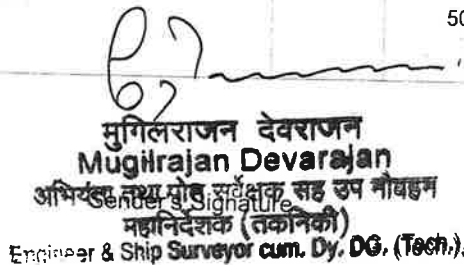 50
मुगिलराजन देवराजन
Mugilrajan Devarajan
अभियंता तथा पोत सर्वेक्षक सह उप नौवहन
Sender's Signature
महानिदेशक (तकनिकी)
Engineer & Ship Surveyor cum. Dy. DG. (Tech.)